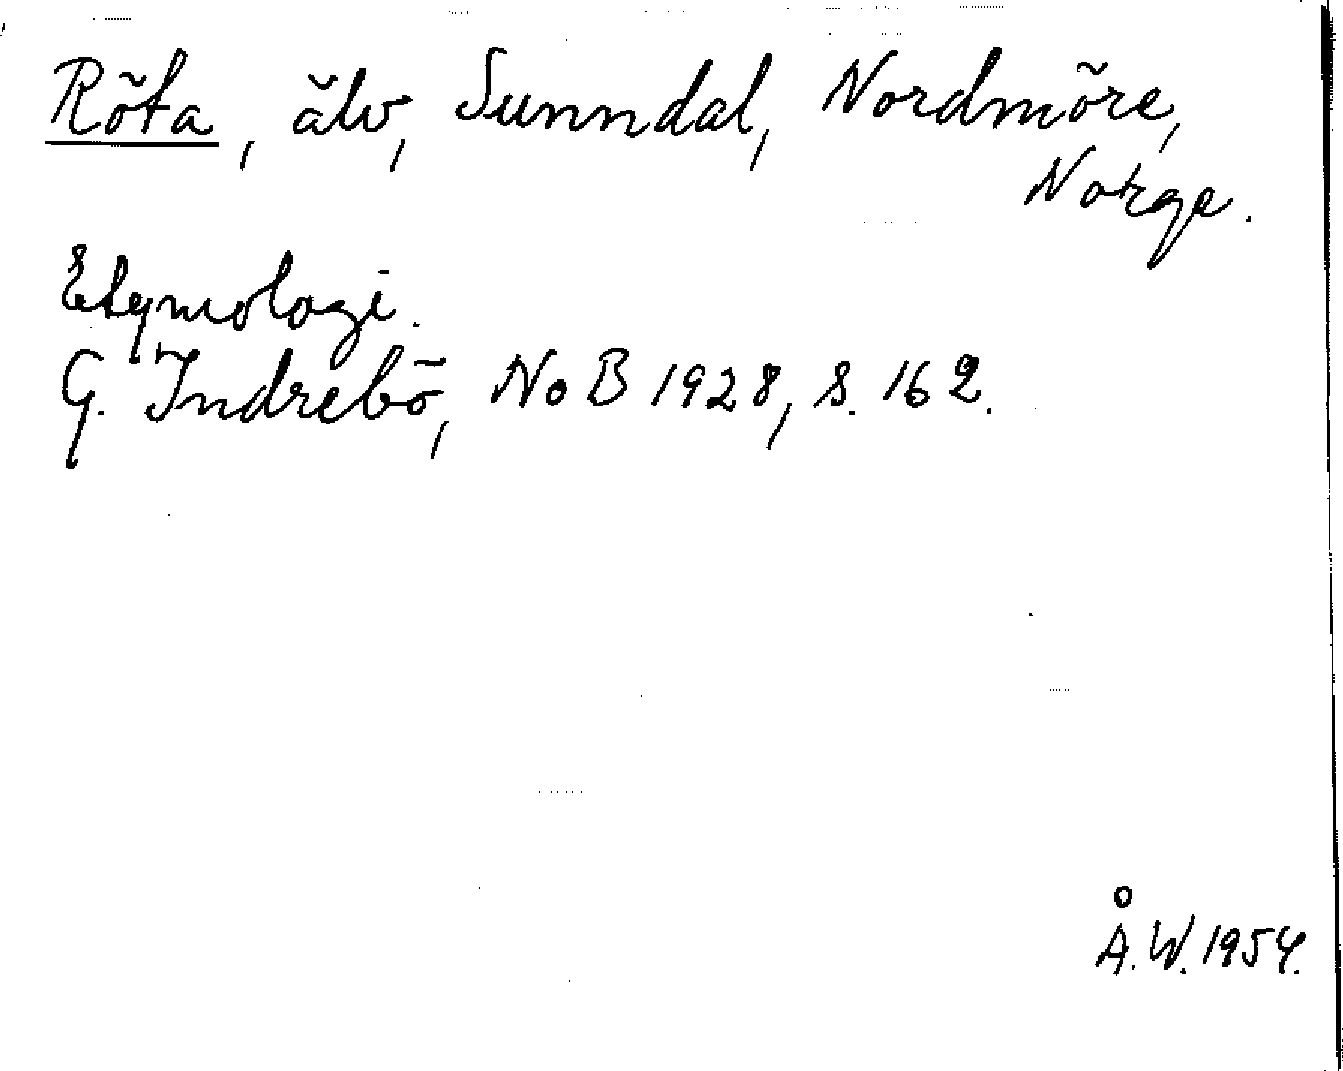 Röta, älv, Sunndal, Nordmöre,
Norge.
Etymologi.
G. Indrebö, NoB 1928, s. 162.
Å.W. 1954.